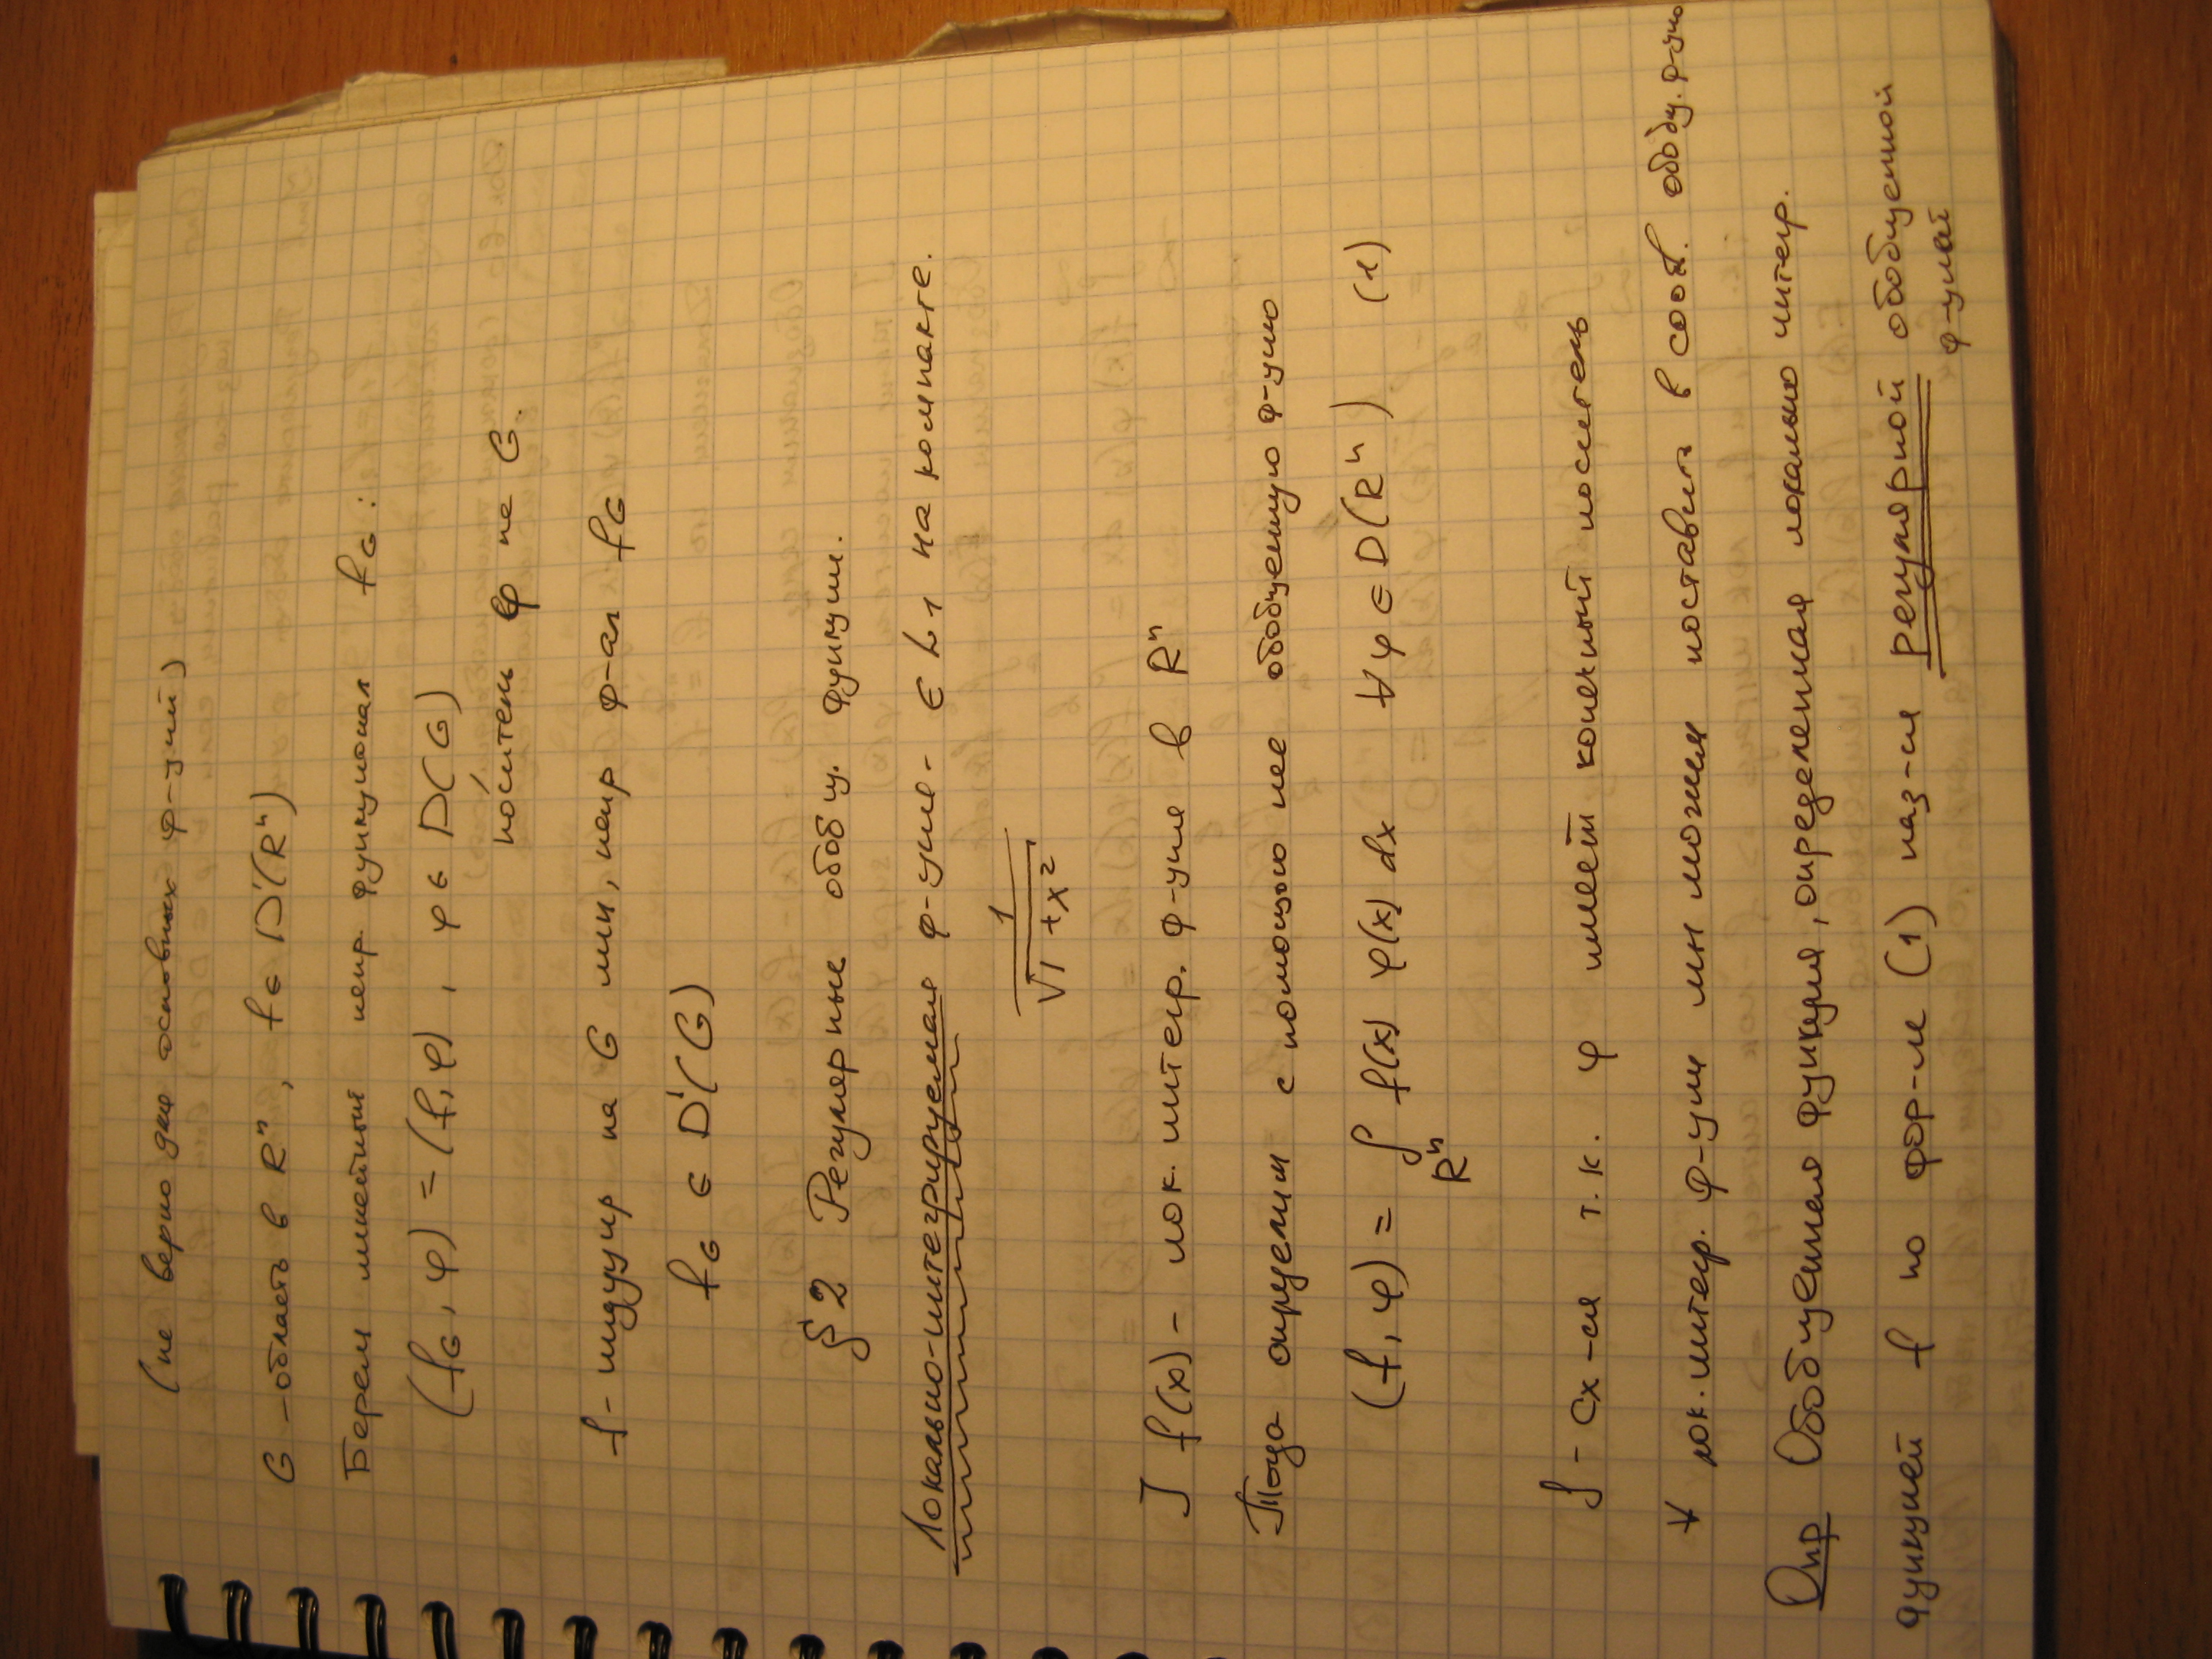 (не верно для основных ф-ций)
G - область в Rⁿ, f ∈ D'(Rⁿ)
Берем линейный непр. функционал f_G :
(f_G, φ) = (f, φ), φ ∈ D(G)
носитель φ не G.
f - индуцир на G лин, непр ф-ал f_G
f_G ∈ D'(G)
§ 2 Регулярные обобщ. функции.
Локально-интегрируемая ф-ция - ∈ L1 на компакте.
1/√(1+x²)
] f(x) - лок. интегр. ф-ция в Rⁿ
Тогда определим с помощью нее обобщенную ф-цию
(f, φ) = ∫_{Rⁿ} f(x) φ(x) dx ∀ φ ∈ D(Rⁿ) (1)
∫ - сх-ся т.к. φ имеет конечный носитель
∀ лок. интегр. ф-ции мы можем поставить в соотв. обобщ. ф-цию
Опр Обобщенная функция, определенная локально интегр.
функцией f по фор-ле (1) наз-ся регулярной обобщенной
ф-цией